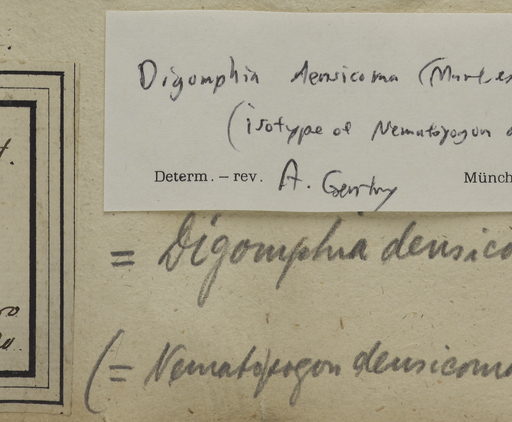 Digomphia densicoma (Mart. ex
(isotype of Nematopogon d
Determ. – rev. A. Gentry Münch
= Digomphia densico
(= Nematopogon densicoma